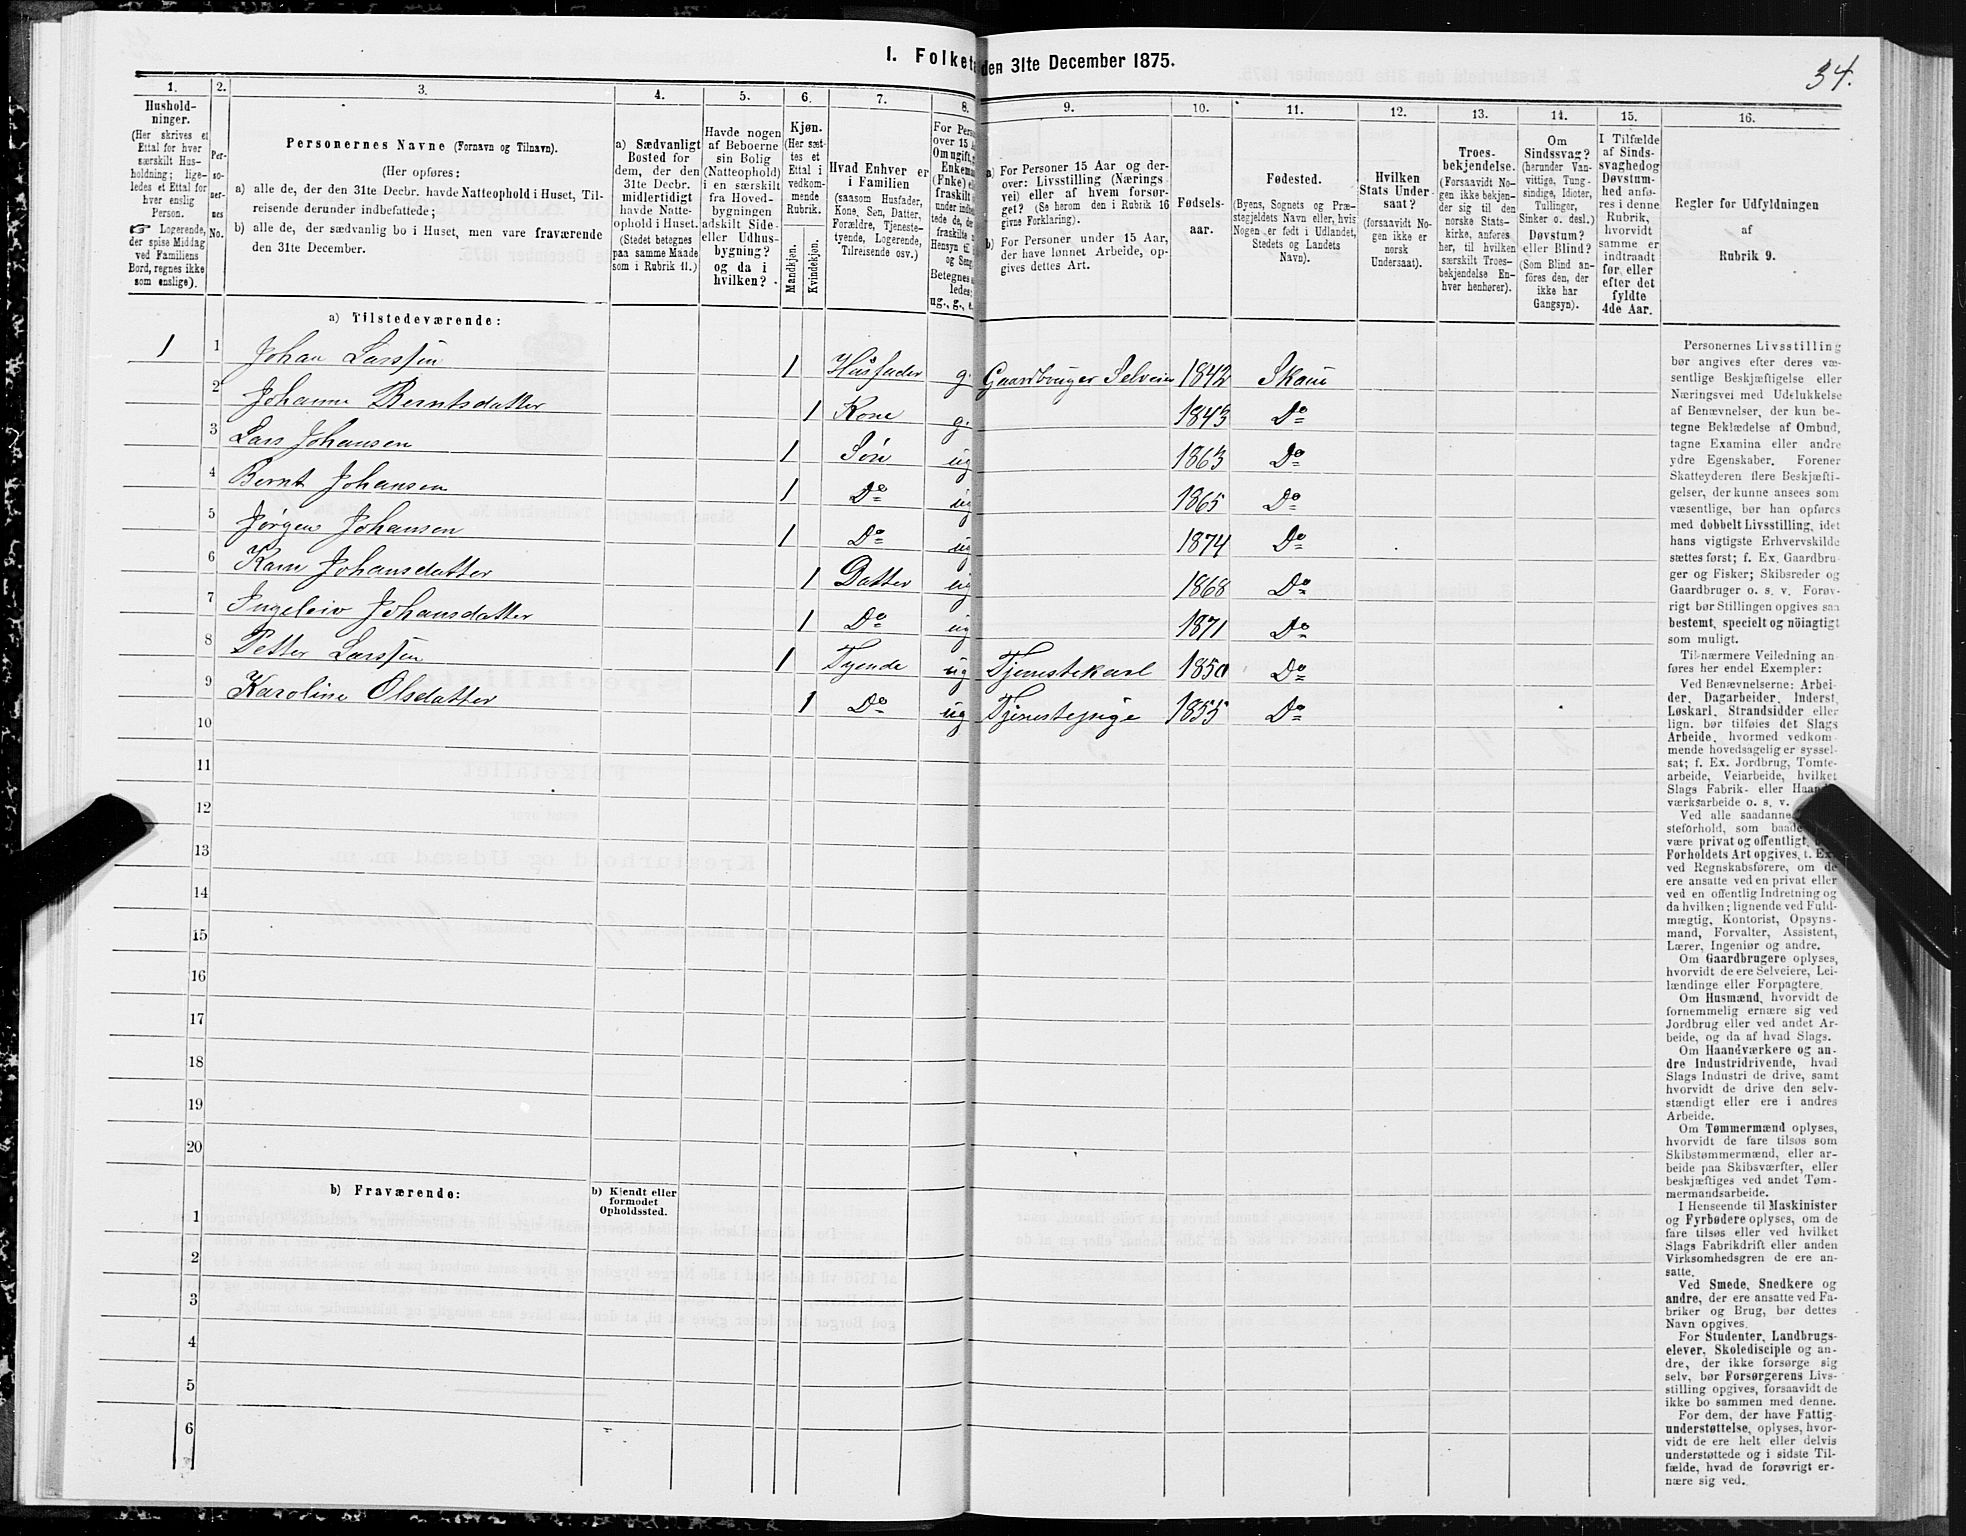 34.
I. Folketæ
den 31te December 1875.
1.
2.
3.
4.
5.
6.
7.
8.
9.
10.
11.
12.
13.
14.
15.
16.
Hushold-
ninger.
(Her skrives et
Ettal for hver
særskilt Hus-
holdning; lige-
ledes et Ettal for
hver enslig
Person.
☞ Logerende,
der spise Middag
ved Familiens
Bord, regnes ikke
som enslige).
Per-
so-
ner-
nes
No.
Personernes Navne (Fornavn og Tilnavn).
(Her opføres:
a) alle de, der den 31te Decbr. havde Natteophold i Huset, Til-
reisende derunder indbefattede;
b) alle de, der sædvanlig bo i Huset, men vare fraværende
den 31te December.
a) Sædvanligt
Bosted for
dem, der den
31te Decbr.
midlertidigt
havde Natte-
ophold i Huset.
(Stedet betegnes
paa samme Maade
som i Rubrik 11.)
Havde nogen
af Beboerne
sin Bolig
(Natteophold)
i en særskilt
fra Hoved-
bygningen
adskilt Side-
eller Udhus-
bygning?
og da i
hvilken?
Kjøn.
(Her sæt-
tes et
Ettal i
vedkom-
mende
Rubrik.
Mandkjøn.
Kvindekjøn.
Hvad Enhver er
i Familien
(saasom Husfader,
Kone, Søn, Datter,
Forældre, Tjeneste-
tyende, Logerende,
Tilreisende osv.)
For Pers
over 15 A
Om ugift,
Enkema
(Enke) e
fraskilt
under indbe
tede de, de
fraskilte
Hensyn til
og Seng
Betegnes
ledes:
ug., g., e.
a) For Personer 15 Aar og der-
over: Livsstilling (Nærings-
vei) eller af hvem forsør-
get? (Se herom den i Rubrik 16
givne Forklaring).
b) For Personer under 15 Aar,
der have lønnet Arbeide, op-
gives dettes Art.
Fødsels-
aar.
Fødested.
(Byens, Sognets og Præ-
stegjeldets Navn eller, hvis
Nogen er født i Udlandet,
Stedets og Landets
Navn).
Hvilken
Stats Under-
saat?
(forsaavidt No-
gen ikke er
norsk
Undersaat).
Troes-
bekjendelse.
(Forsaavidt No-
gen ikke bekjen-
der sig til den
norske Stats-
kirke, anføres
her, til hvilken
særskilt Troes-
bekjendelse En-
hver henhører).
Om
Sindssvag?
(herunder Van-
vittige, Tung-
sindige, Idioter,
Tullinger,
Sinker o. desl.)
Døvstum?
eller Blind?
(Som Blind an-
føres den, der
ikke har
Gangsyn).
I Tilfælde
af Sinds-
svaghed og
Døvstum-
hed anfø-
res i denne
Rubrik,
hvorvidt
samme er
indtraadt
før eller
efter det
fyldte
4de Aar.
Regler for Udfyldningen
af
Rubrik 9.
a) Tilstedeværende:
1 1 Johan Larssen 1 Husfader g. Gaardbruger Selveier 1842 Skaun
2 Johanne Berntsdatter 1 Kone g. 1843 Do
3 Lars Johansen 1 Søn ug 1863 Do
4 Bernt Johansen 1 Do ug 1865 Do
5 Jørgen Johansen 1 Do ug 1874 Do
6 Karn Johansdatter 1 Datter ug 1868 Do
7 Ingeleiv Johansdatter 1 Do ug 1871 Do
8 Petter Larssen 1 Tyende ug Tjenestekarl 1850 Do
9 Karoline Olsdatter 1 Do ug Tjenestepige 1855 Do
10
11
12
13
14
15
16
17
18
19
20
b) Fraværende:
b) Kjendt eller
formodet
Opholdssted.
1
2
3
4
5
6
Personernes Livsstilling
bør angives efter deres væ-
sentlige Beskjæftigelse eller
Næringsvei med Udelukkelse
af Benævnelser, der kun be-
tegne Beklædelse af Ombud,
tagne Examina eller andre
ydre Egenskaber. Forener
Skatteyderen flere Beskjæfti-
gelser, der kunne ansees som
væsentlige, bør han opføres
med dobbelt Livsstilling, idet
hans vigtigste Erhvervskilde
sættes først; f. Ex. Gaardbru-
ger og Fisker; Skibsreder og
Gaardbruger o. s. v. Forøv-
rigt bør Stillingen opgives saa
bestemt, specielt og nöiagtigt
som muligt.
Til nærmere Veiledning an-
føres her endel Exempler:
Ved Benævnelserne: Arbei-
der, Dagarbeider, Inderst,
Løskarl, Strandsidder eller
lign. bør tilføies det Slags
Arbeide, hvormed vedkom-
mende hovedsagelig er syssel-
sat; f. Ex. Jordbrug, Tomte-
arbeide, Veiarbeide, hvilket
Slags Fabrik- eller Haand-
værksarbeide o. s. v.
Ved alle saadanne
steforhold, som baade
være privat og offentligt,
Forholdets Art opgives, t. Ex.
ved Regnskabsførere, om de
ere ansatte ved en privat eller
ved en offentlig Indretning og
da hvilken; lignende ved Fuld-
mægtig, Kontorist, Opsyns-
mand, Forvalter, Assistent,
Lærer, Ingeniør og andre.
Om Gaardbrugere oplyses,
hvorvidt de ere Selveiere, Lei-
lændinge eller Forpagtere.
Om Husmænd, hvorvidt de
fornemmelig ernære sig ved
Jordbrug eller ved andet Ar-
beide, og da af hvad Slags.
Om Haandværkere og an-
dre Industridrivende, hvad
Slags Industri de drive, samt
hvorvidt de drive den selv-
stændigt eller ere i andres
Arbeide.
Om Tømmermænd oplyses,
hvorvidt de fare tilsøs som
Skibstømmermænd, eller ar-
beide paa Skibsværfter, eller
beskjæftiges ved andet Tøm-
mermandsarbeide.
I Henseende til Maskinister
og Fyrbødere oplyses, om de
fare tilsøs eller ved hvilket
Slags Fabrikdrift eller anden
Virksomhedsgren de ere an-
satte.
Ved Smede, Snedkere og
andre, der ere ansatte ved Fa-
briker og Brug, bør dettes
Navn opgives.
For Studenter, Landbrugs-
elever, Skoledisciple og an-
dre, der ikke forsørge sig
selv, bør Forsørgerens Livs-
stilling opgives, forsaavidt de
ikke bo sammen med denne.
For dem, der have Fattig-
understøttelse, oplyses, hvor-
vidt de ere helt eller delvis
understøttede og i sidste Til-
fælde, hvad de forøvrigt er-
nære sig ved.